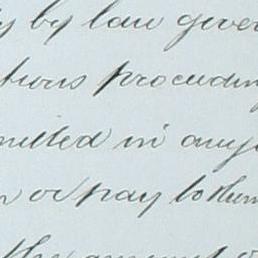 by law gover
tions proceeding
mitted in any
or pay to them
the amount